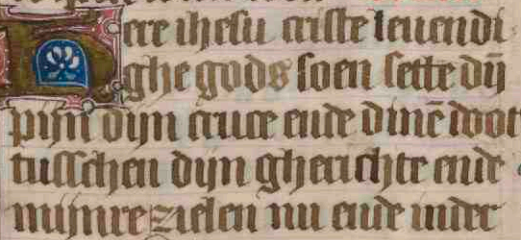 Here ihesu criste leuendi
ghe gods soen sette dijn
pijn dijn cruce ende dinē doot
tusschen dijn gherichte ende
mijnre zielen nu ende inder